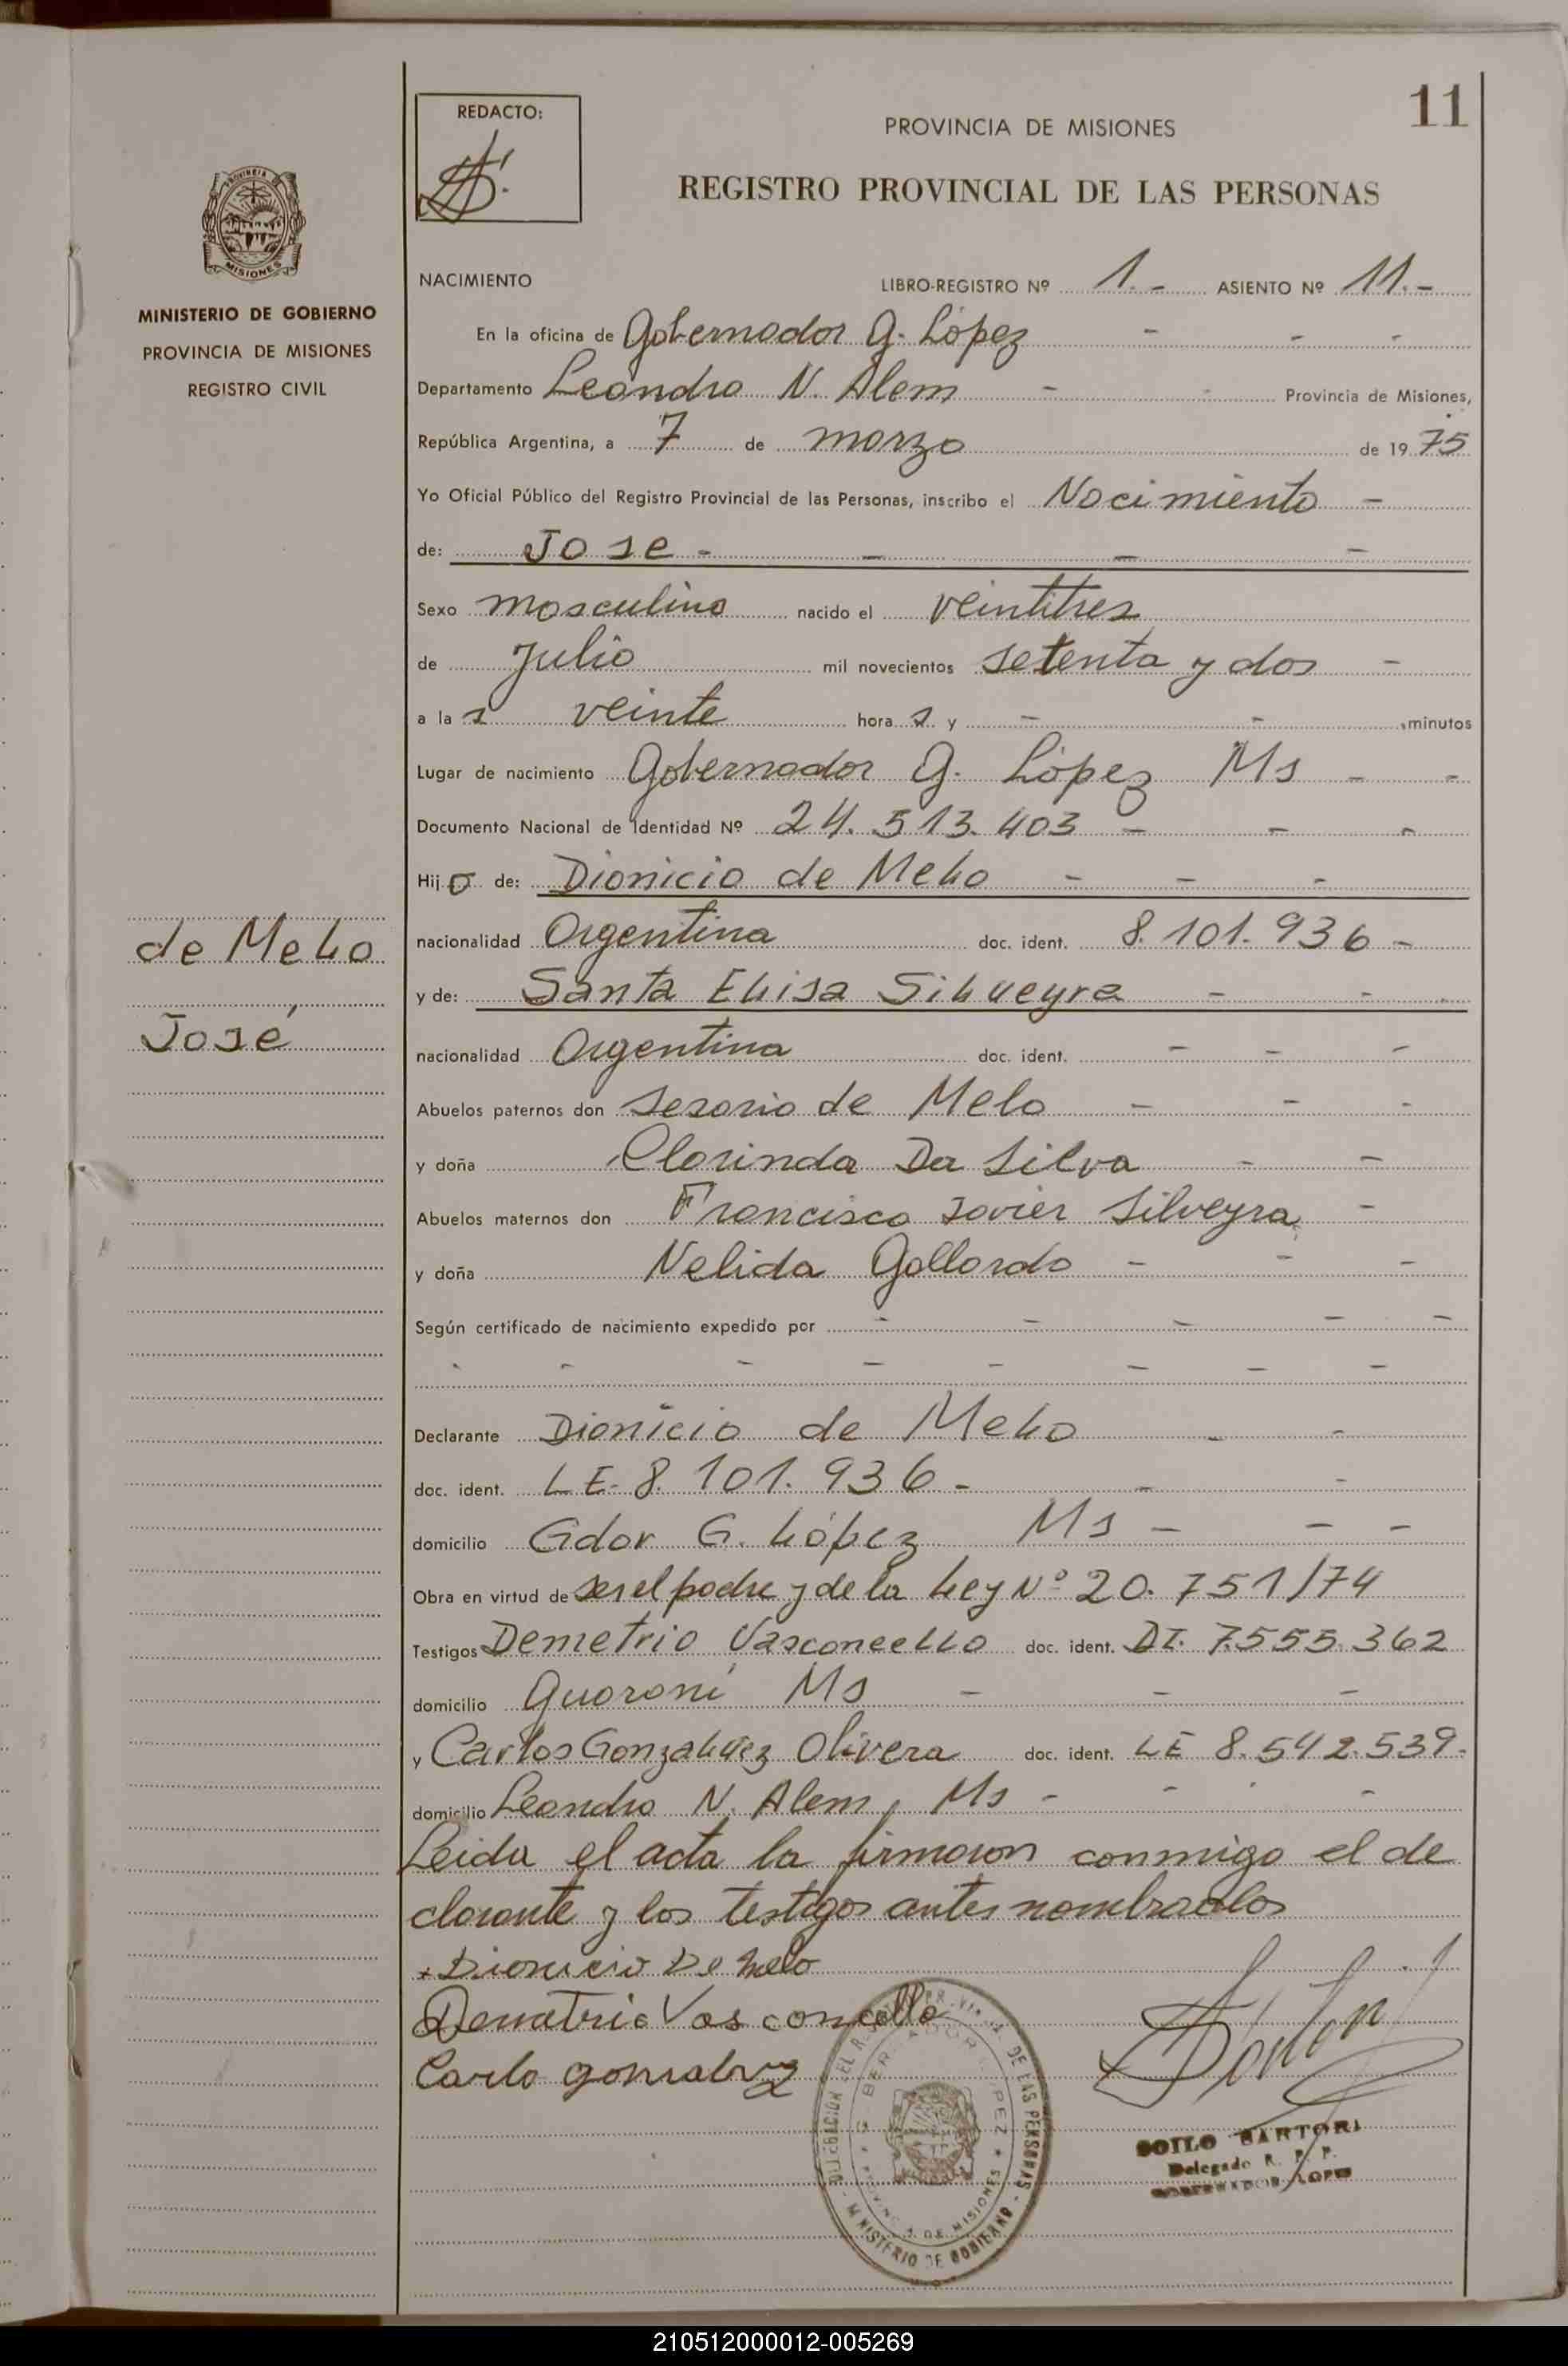 11
REDACTO:
PROVINCIA DE MISIONES
REGISTRO PROVINCIAL DE LAS PERSONAS
MINISTERIO DE GOBIERNO
PROVINCIA DE MISIONES
REGISTRO CIVIL
NACIMIENTO LIBRO-REGISTRO Nº 1.- ASIENTO Nº 11.-
En la oficina de Gobernador G. López - - -
Departamento Leandro N. Alem - - Provincia de Misiones,
República Argentina, a 7 de marzo de 1975
Yo Oficial Público del Registro Provincial de las Personas, inscribo el Nacimiento -
de: Jose - - - -
Sexo masculino nacido el veintitres
de Julio mil novecientos setenta y dos -
a la s veinte hora s y - - minutos
Lugar de nacimiento Gobernador G. López Ms - -
Documento Nacional de Identidad Nº 24.513.403 - - -
Hij o de: Dionicio de Melo - - -
de Melo
José
nacionalidad Argentina doc. ident. 8.101.936 -
y de: Santa Elisa Silveyra - -
nacionalidad Argentina doc. ident. - - -
Abuelos paternos don de Melo - - -
y doña Clorinda Da Silva - -
Abuelos maternos don Francisco Javier Silveyra -
y doña Nelida Gallardo - - -
Según certificado de nacimiento expedido por - - - - -
- - - - - - - -
Declarante Dionicio de Melo - -
doc. ident. LE- 8.101.936 - - -
domicilio Gdor G. López Ms - - -
Obra en virtud de ser el padre y de la Ley Nº 20.751/74
Testigos Demetrio Vasconcello doc. ident. DI. 7.555.362
domicilio Guarani Ms - - -
y Carlos Gonzalvez Olivera doc. ident. LE 8.542.539-
domicilio Leandro N. Alem, Ms - - -
Leida el acta la firmaron conmigo el de
clarante y los testigos antes nombrados
Dionicio De Melo
Demetrio Vasconcello
Carlo
REGISTRO PROVINCIAL DE LAS PERSONAS
GOBERNADOR LOPEZ
PROVINCIA DE MISIONES
MINISTERIO DE GOBIERNO
SOILO SARTORI
Delegado R. P. P.
GOBERNADOR LOPEZ
210512000012-005269